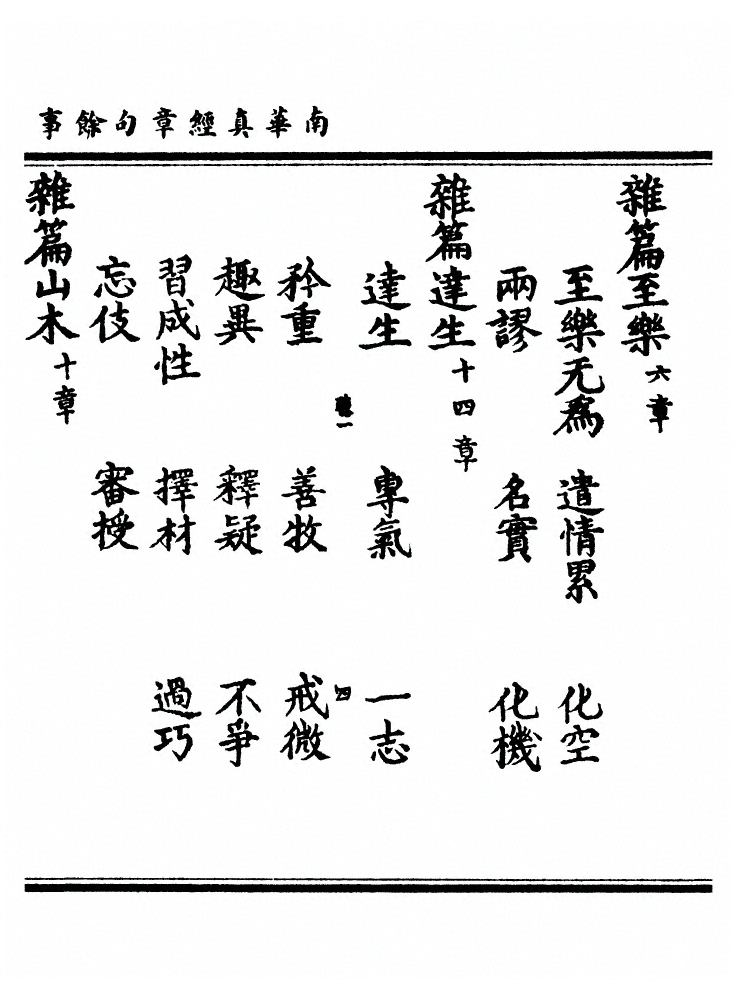 南華真經章句餘事
雜篇至樂六章
至樂无為 遣情累 化空
兩謬 名實 化機
雜篇達生十四章
達生 專氣 一志
四
矜重 善牧 戒微
趣異 釋疑 不爭
習成性 擇材 過巧
忘伎 審授
雜篇山木十章